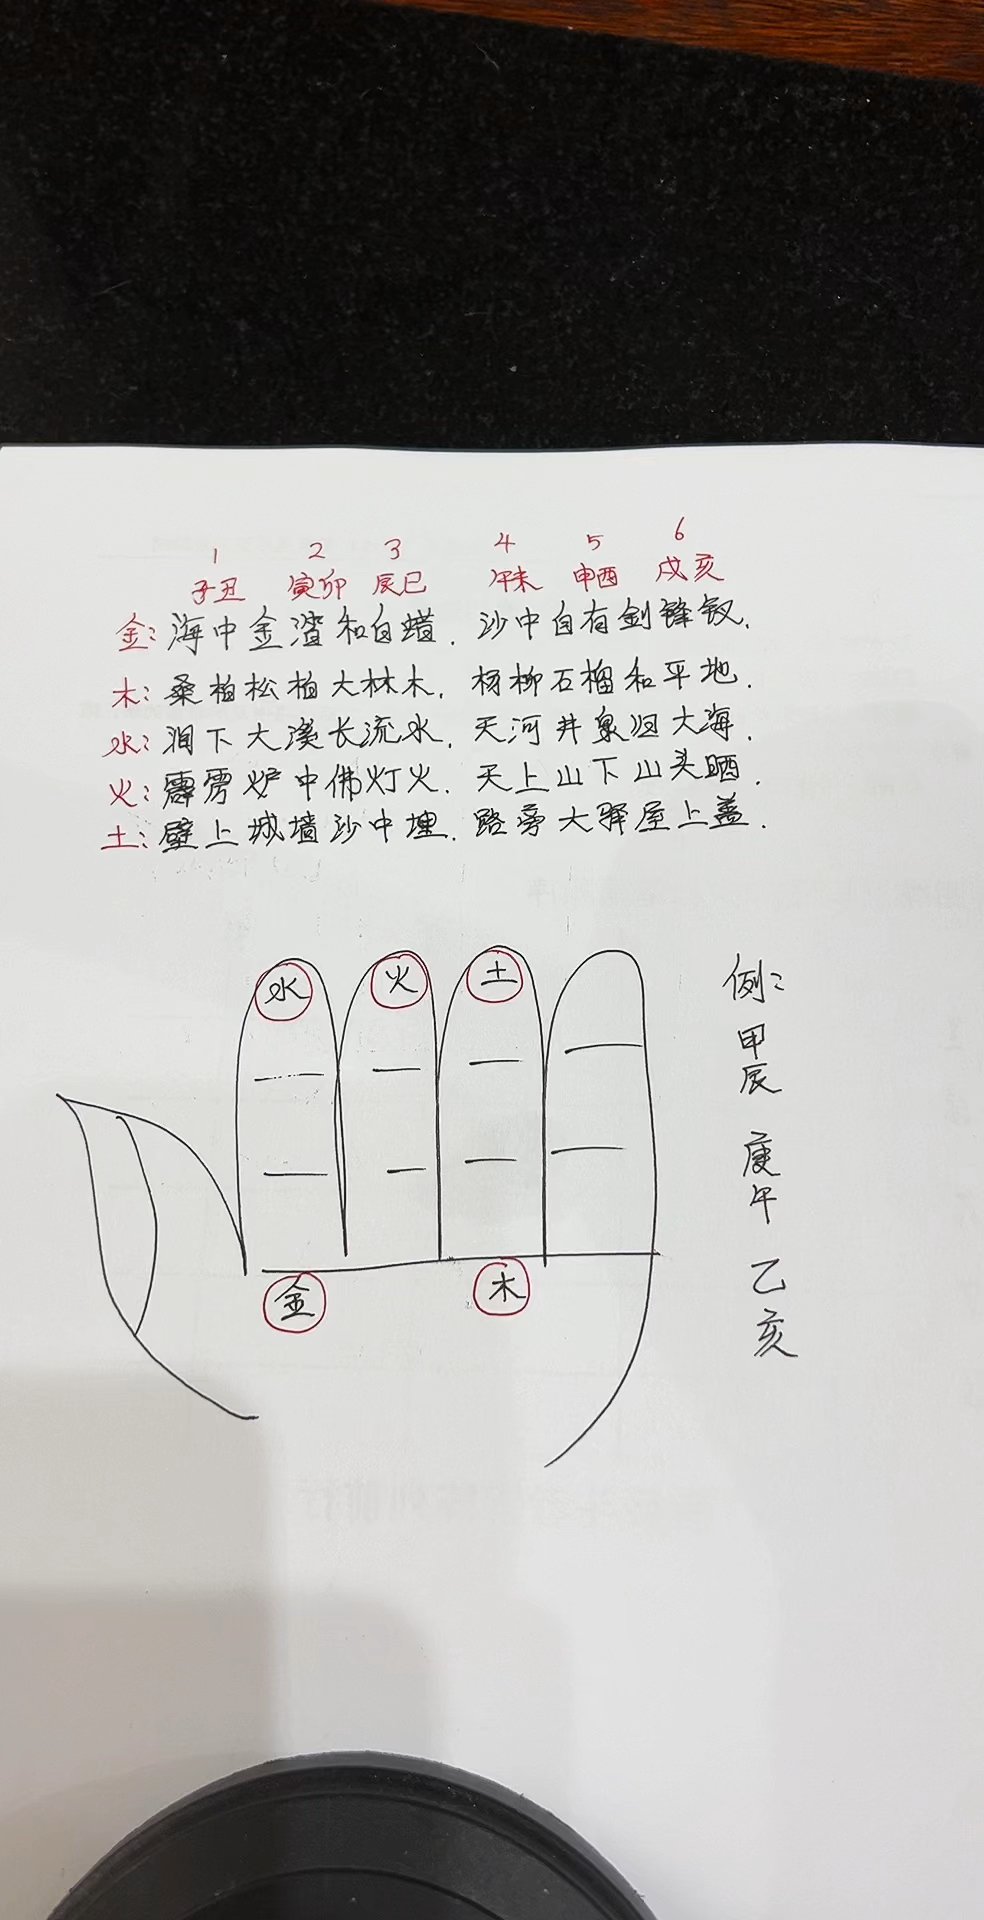 1 2 3 4 5 6
子丑 寅卯 辰巳 午未 申酉 戌亥
金:海中金渣和白蜡.沙中自有剑锋钗.
木:桑柏松柏大林木.杨柳石榴和平地.
水:润下大溪长流水.天河井泉归大海.
火:霹雳炉中佛灯火.天上山下山头晒.
土:壁上城墙沙中埋.路旁大驿屋上盖.
水 火 土
金 木
例:
甲
辰
庚
午
乙
亥